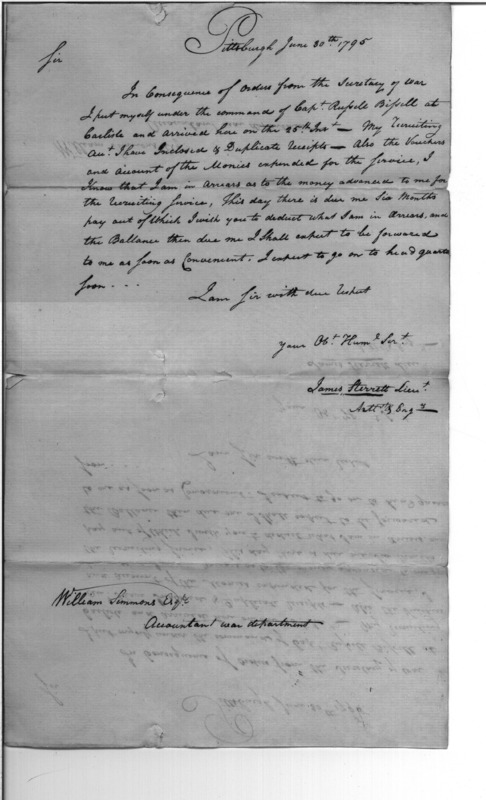 Pittsburgh June 30th 1795
Sir
In Consequence of orders from the Secretary of war
I put myself under the command of Capt Russell Bissell at
Carlisle and arrived here on the 25th Inst — My Recruiting
Acct I have Inclosed & Duplicate Receipts — Also the Vouchers
and account of the Monies expended for the Service, I
Know that I am in arrears as to the money advanced to me for
the Recruiting Service, This day there is due me Six Months
pay out of Which I wish you to deduct what I am in Arrears, and
the Ballance then due me I Shall expect to be forwarded
to me as soon as Convenient. I expect to go on to head quarters
soon . . .
I am Sir with due respect
your Obt Humle Sert
James Sterrett Lieut
Artts & Engrs
William Simmons Esqr
Accountant war department